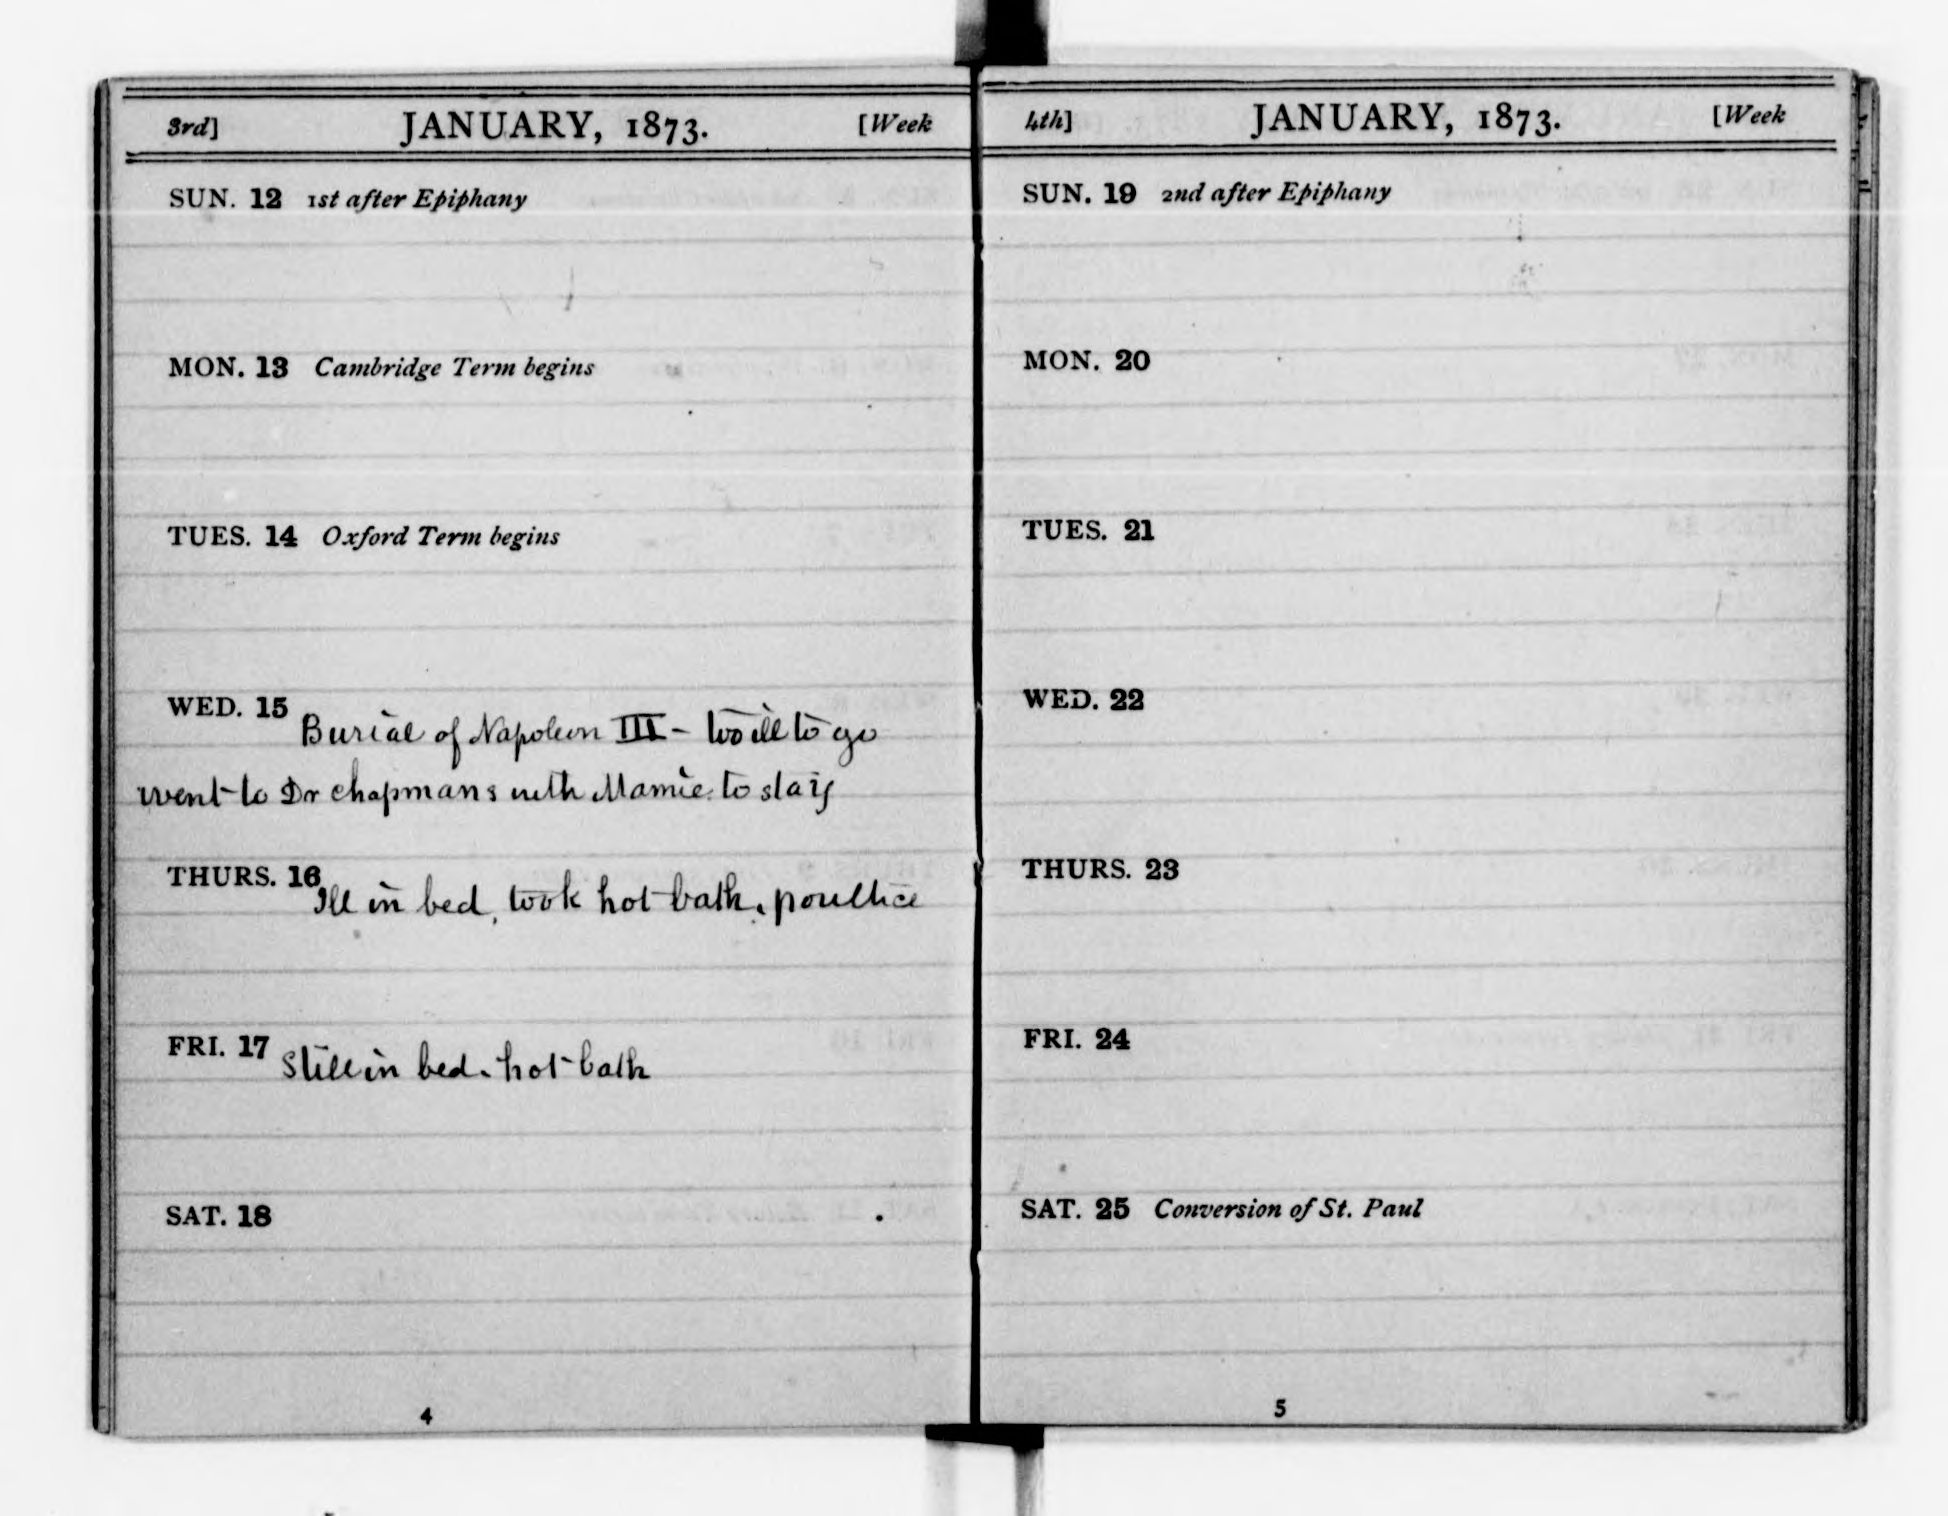 3rd] JANUARY, 1873. [Week
SUN. 12 1st after Epiphany
MON. 13 Cambridge Term begins
TUES. 14 Oxford Term begins
WED. 15
Burial of Napoleon III - too ill to go
went to Dr chapmans with Mamie. to stay
THURS. 16
Ill in bed, took hot bath. poultice
FRI. 17
Still in bed. hot bath
SAT. 18
4
4th] JANUARY, 1873. [Week
SUN. 19 2nd after Epiphany
MON. 20
TUES. 21
WED. 22
THURS. 23
FRI. 24
SAT. 25 Conversion of St. Paul
5